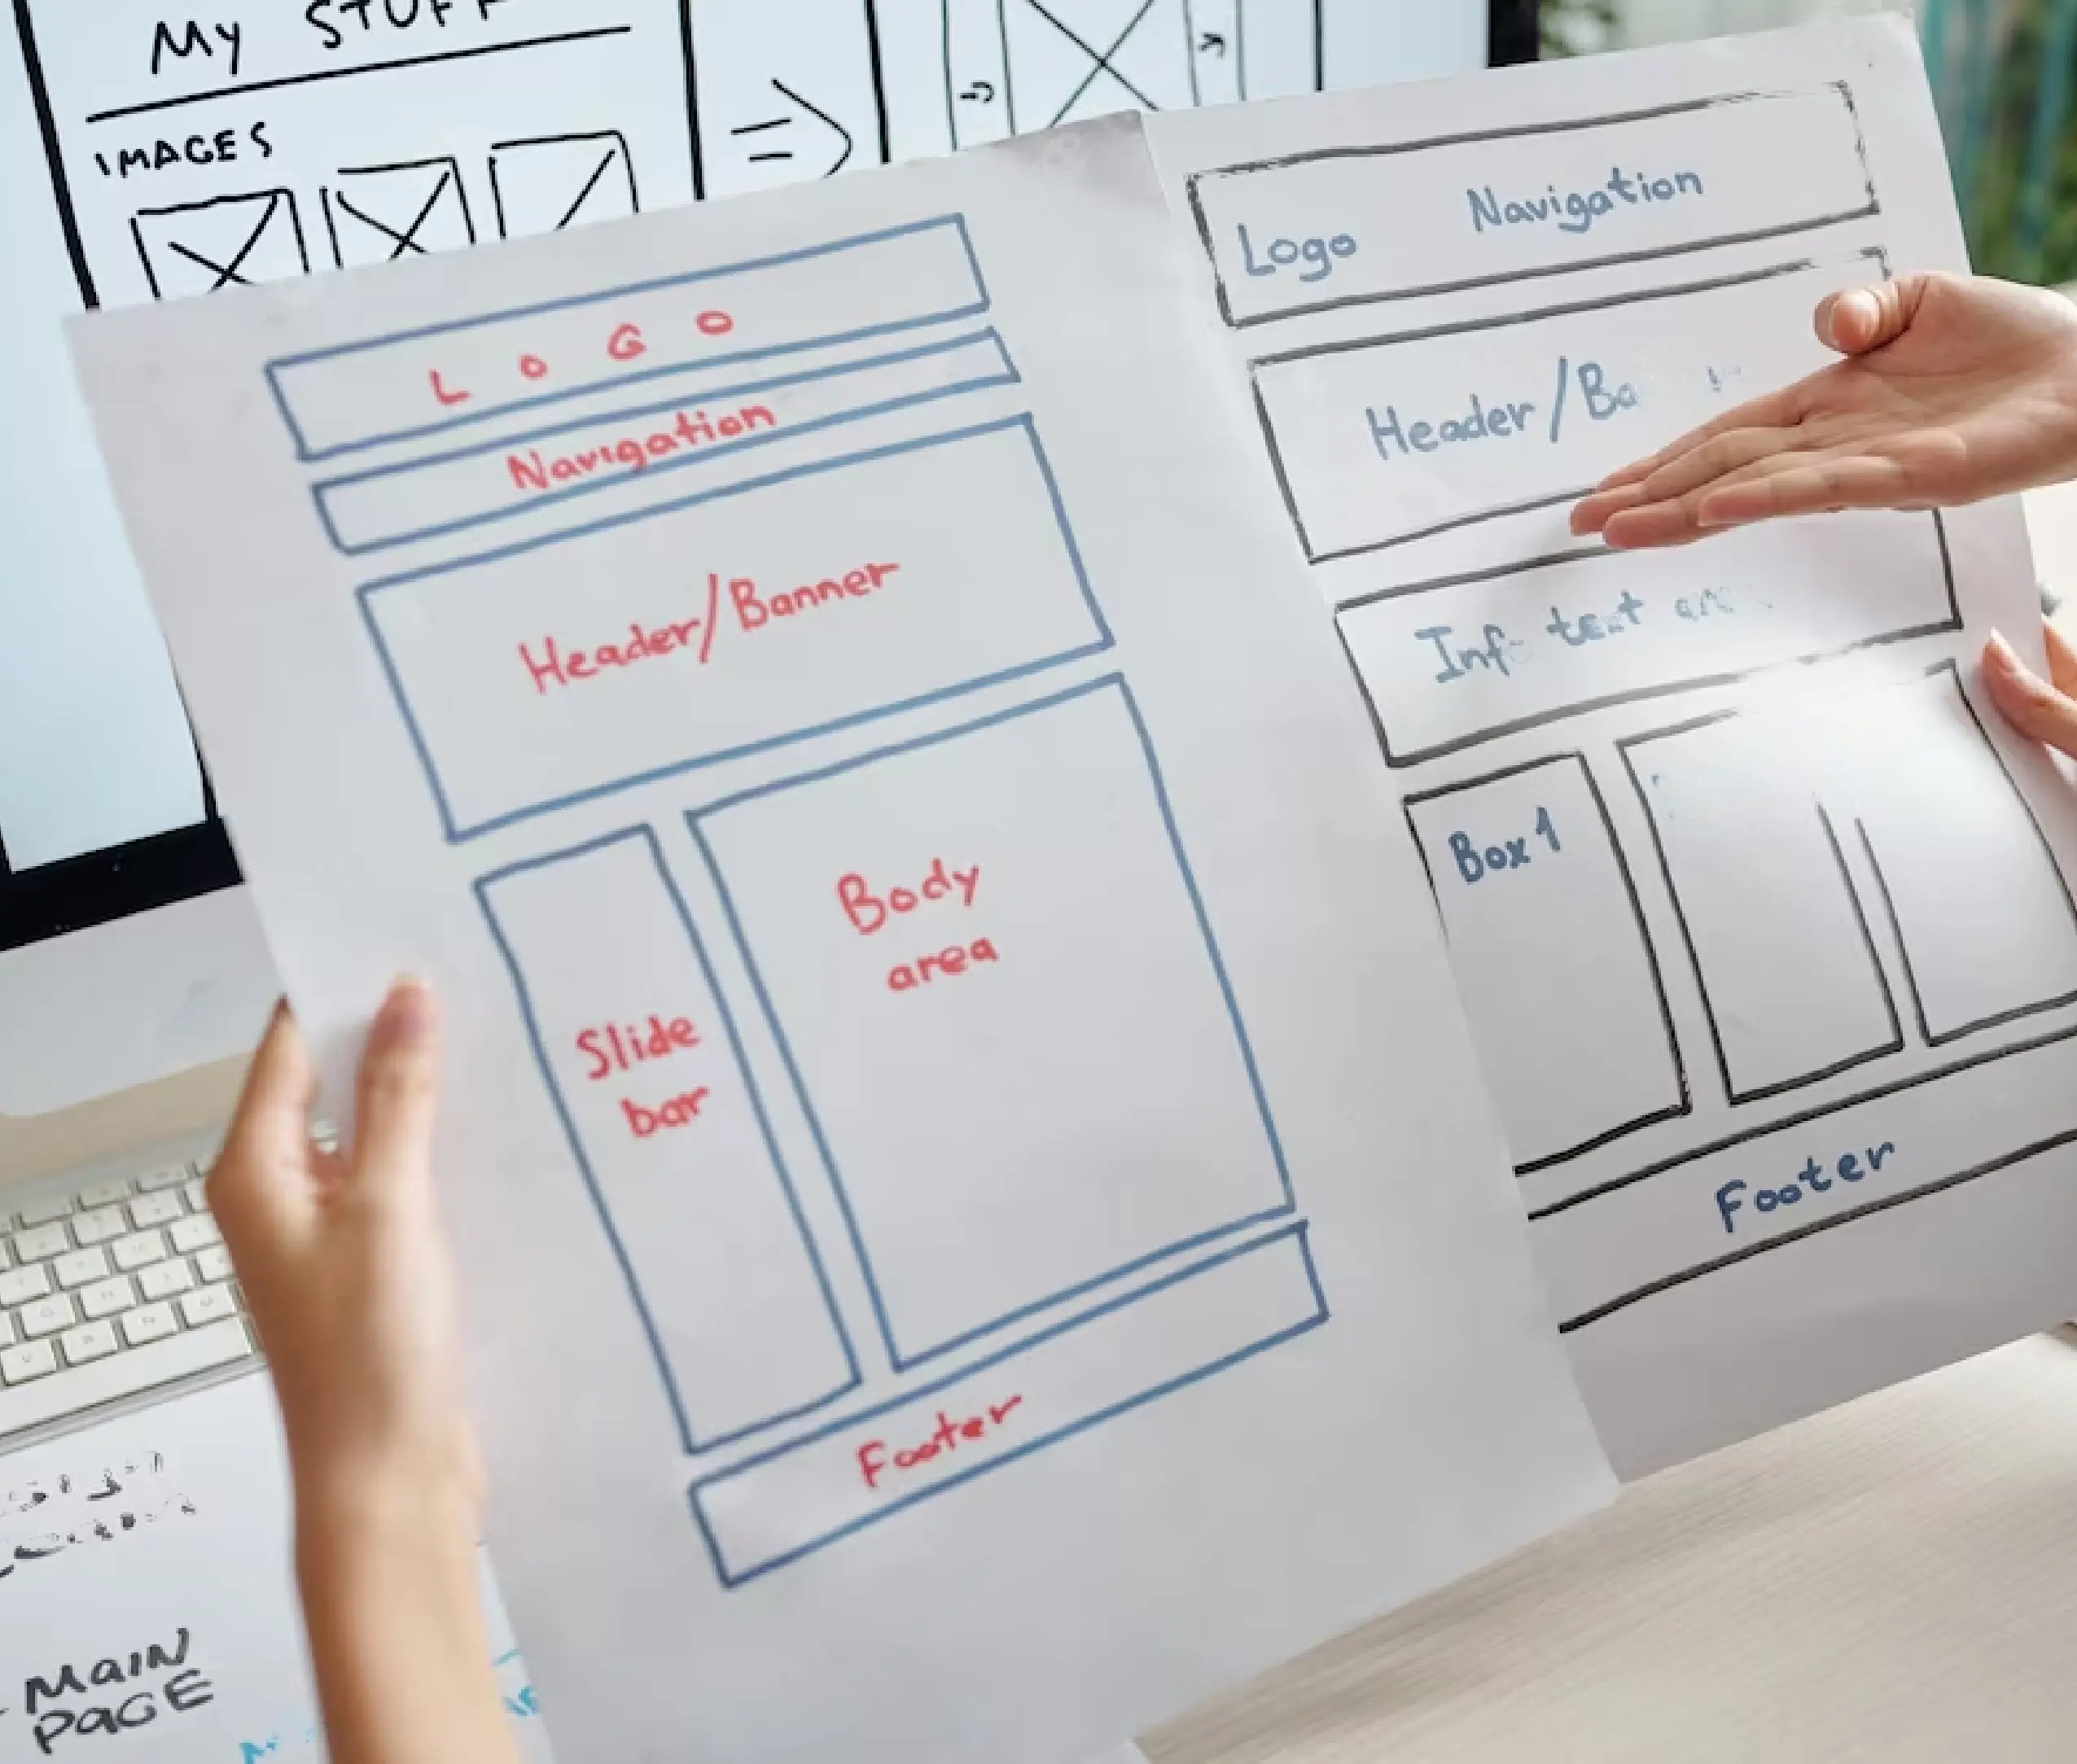 My STUFF
IMAGES
LOGO
Navigation
Header/Banner
Body
area
Slide
bar
Footer
Logo Navigation
Header/Ba
Info text area
Box 1
Footer
MAIN
PAGE